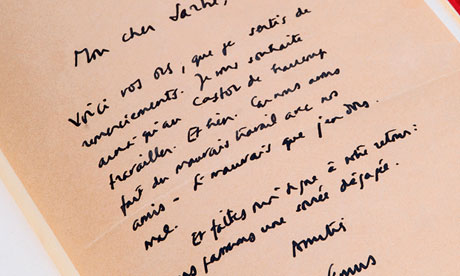 Mon cher Sartre,
Voici vos ors, que je sertis de
remerciements. Je vous souhaite
ainsi qu'au Castor de beaucoup
travailler. Et bien. Car nous avons
fait du mauvais travail avec nos
amis - si mauvais que j'en dors
mal.
Et faites-moi signe à votre retour :
passerons une soirée dégagée.
Amitiés